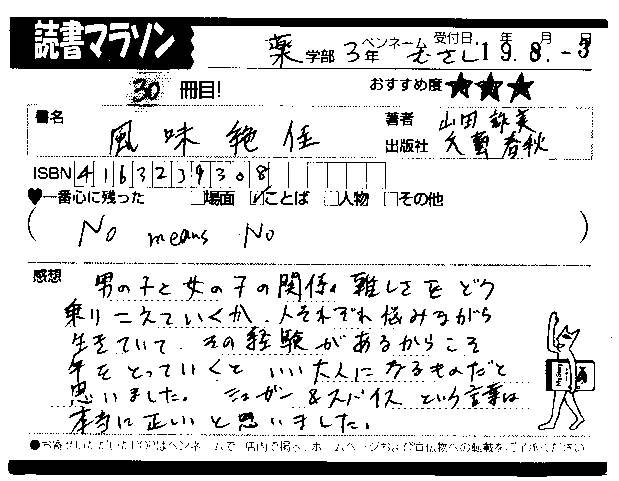 読書マラソン
薬学部 3年 ペンネーム むさし 受付日 19年8月-3日
30冊目!
おすすめ度 ★★★
書名 風味絶佳
著者 山田詠美
出版社 文藝春秋
ISBN 4163239308
♥一番心に残った □場面 ☑ことば □人物 □その他
( No means No )
感想 男の子と女の子の関係。難しさをどう
乗りこえていくか、人それぞれ悩みながら
生きていて、その経験があるからこそ
年をとっていくと いい大人になるものだと
思いました。 シュガー&スパイス という言葉は
本当に正しいと思いました。
●お寄せいただいたPOPはペンネームで、店内で掲示、ホームページおよび宣伝物への転載をご了承ください